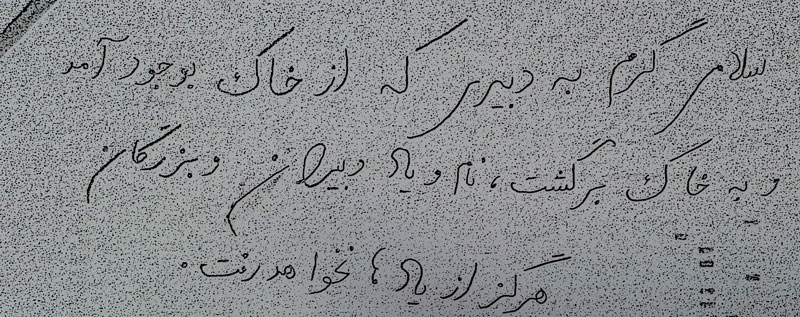 سلامی گرم به دبیری که از خاک بوجود آمد
و به خاک برگشت، نام و یاد دبیران و بزرگان
هرگز از یاد ها نخواهد رفت.